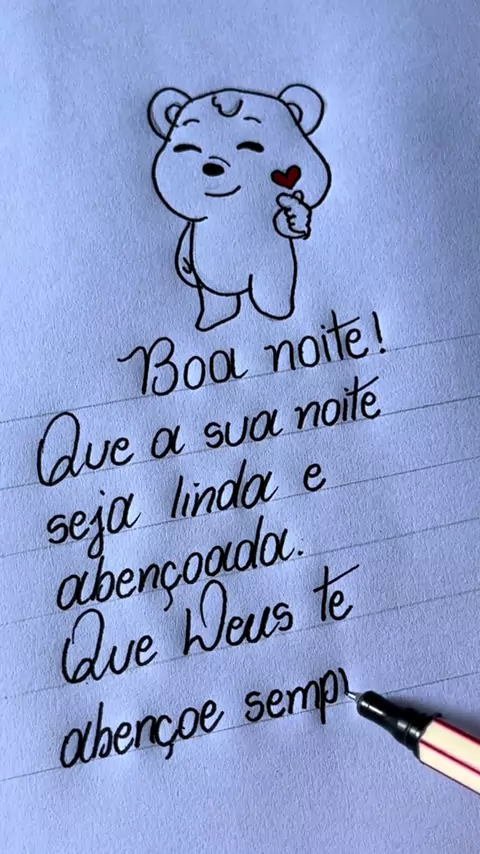 Boa noite!
Que a sua noite
seja linda e
abençoada.
Que Deus te
abençoe semp